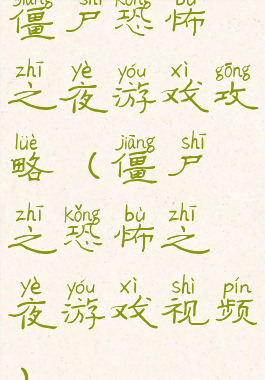 jiāng shī kǒng bù
僵尸恐怖
zhī yè yóu xì gōng
之夜游戏攻
lüè jiāng shī
略（僵尸
zhī kǒng bù zhī
之恐怖之
yè yóu xì shì pín
夜游戏视频
）